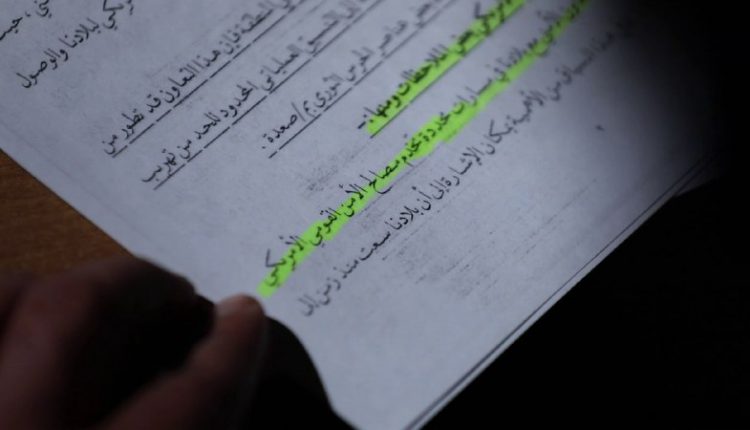 ني، حيث
ريكي لبلادنا والوصول
المنطقة فإن هذا التعاون قد تطور من
الى التنسيق العملياتي المحدود للحد من تهريب
بعض عناصر الحرس الثوري بم/صعدة.
ريكي بعض الملاحظات ومنها:
بلادنا في مسارات محددة تخدم مصالح الأمن القومي الأمريكي
هذا السياق من الأهمية بمكان الإشارة إلى أن بلادنا سعت منذ زمن إلى